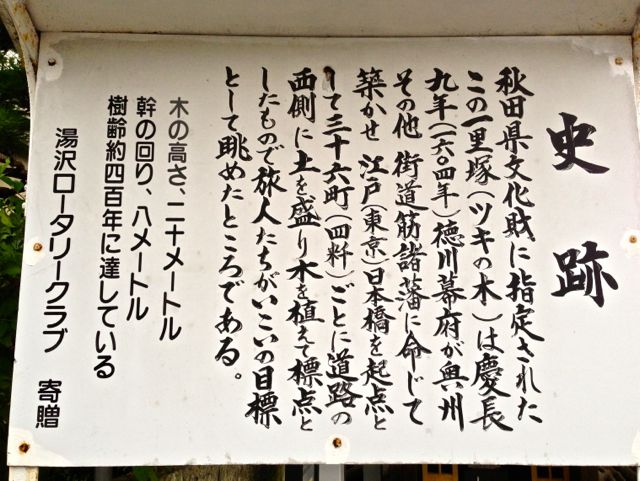 史跡
秋田県文化財に指定された
この一里塚(ツキの木)は慶長
九年(一六〇四年)徳川幕府が奥州
その他 街道筋諸藩に命じて
築かせ 江戸(東京)日本橋を起点と
して三十六町(四粁)ごとに道路の
両側に土を盛り木を植えて標点と
したもので旅人たちがいこいの目標
として眺めたところである。
木の高さ、二十メートル
幹の回り、八メートル
樹齢約四百年に達している
湯沢ロータリークラブ 寄贈